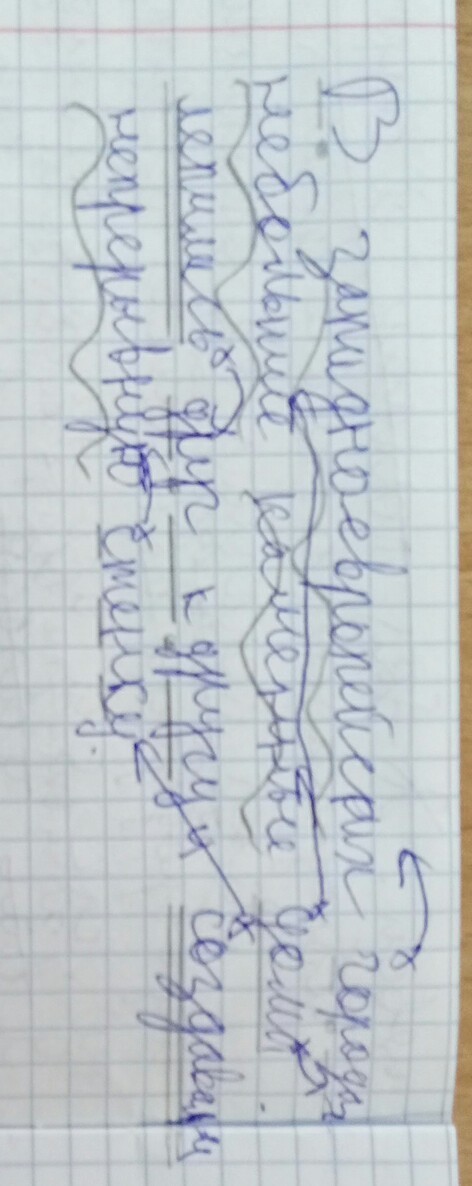 В западноеврепейских городъ
небольшие каменный доми
лепились друг к другу и создавали
непрерывную стенку.